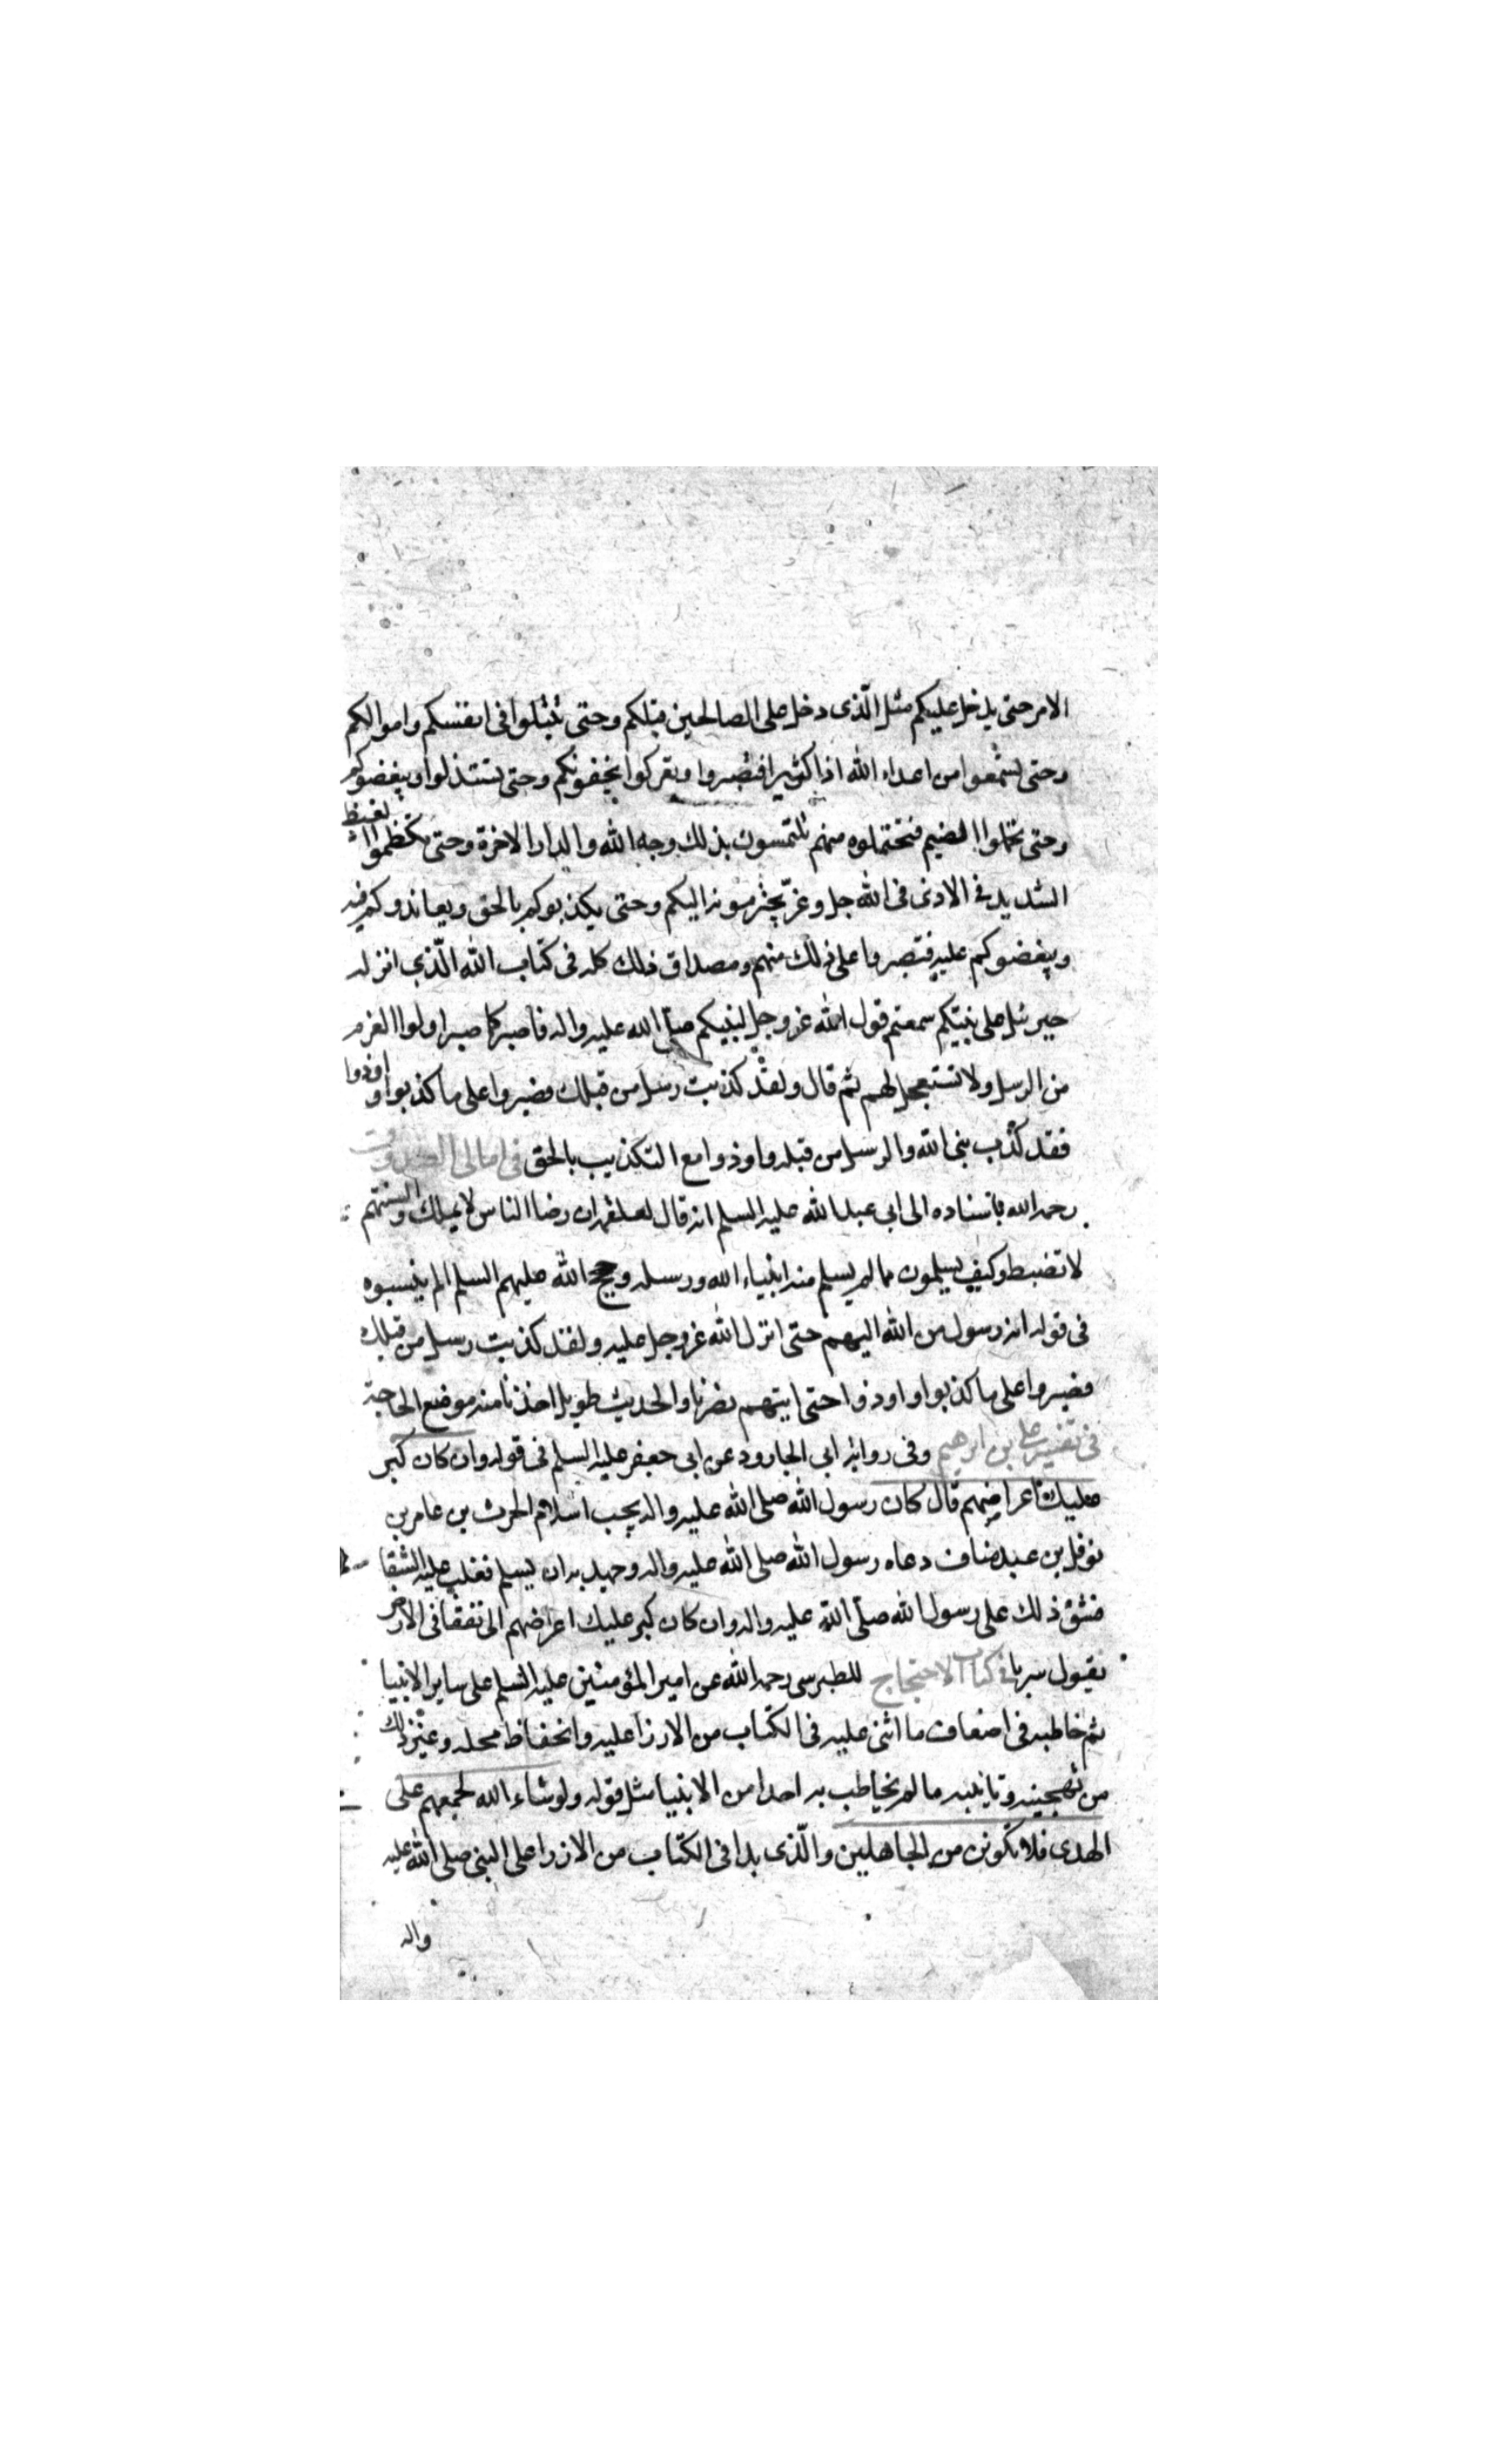 الامر حتى يدخل عليكم مثل الّذى دخل على الصالحين قبلكم وحتى تبتلوا فى انفسكم واموالكم
وحتى تسمعوا من اعداء الله اذا كثيرا فتصبروا وتعركوا بجنوبكم وحتى يستذلوا ويبغضوكم
وحتى تحملوا الضيم فتحتملوه منهم تلتمسون بذلك وجه الله والدار الاخرة وحتى تكظموا الغيظ
الشديد فى الاذى فى الله جل وعزّ يجترمونه اليكم وحتى يكذبوكم بالحق ويعاندوكم فيه
ويبغضوكم عليه فتصبروا على ذلك منهم ومصداق ذلك كله فى كتاب الله الّذى انزله
جبرئيل على نبيّكم سمعتم قول الله عز وجل لنبيكم صلى الله عليه واله فاصبر كما صبر اولوا العزم
من الرسل ولا تستعجل لهم ثم قال ولقد كذبت رسل من قبلك فصبروا على ما كذبوا واوذوا
فقد كذّب نبى الله والرسل من قبله واوذوا مع التكذيب بالحق فى امالى الصدوق
رحمه الله باسناده الى ابى عبد الله عليه السلم انه قال لعلقمه ان رضا الناس لا يملك والسنتهم
لا تضبط وكيف تسلمون مما لم يسلم منه انبياء الله ورسله وحجج الله عليهم السلم الم ينسبوه
فى قوله انه رسول من الله اليهم حتى انزل الله عز وجل عليه ولقد كذبت رسل من قبلك
فصبروا على ما كذبوا واوذوا حتى ايتهم نصرنا والحديث طويل اخذنا منه موضع الحاجة
فى تفسير على بن ابرهيم وفى رواية ابى الجارود عن ابى جعفر عليه السلم فى قوله وان كان كبر
عليك اعراضهم قال كان رسول الله صلى الله عليه واله يحب اسلام الحرث بن عامر بن
نوفل بن عبد مناف دعاه رسول الله صلى الله عليه واله وجهد به ان يسلم فغلب عليه الشقا
فشق ذلك على رسول الله صلّى الله عليه واله وان كان كبر عليك اعراضهم الى نفقا فى الارض
يقول سربا فى كتاب الاحتجاج للطبرسى رحمه الله عن امير المؤمنين عليه السلم على ساير الانبيا
ثم خاطبه فى اضعاف ما اثنى عليه فى الكتاب من الازرا عليه وانخفاظ محله وغير ذلك
من تهجينه وتانيبه ما لم يخاطب به احدا من الانبيا مثل قوله ولو شاء الله لجمعهم على
الهدى فلا تكونن من الجاهلين والّذى بدا فى الكتاب من الازرا على النبى صلى الله عليه
واله